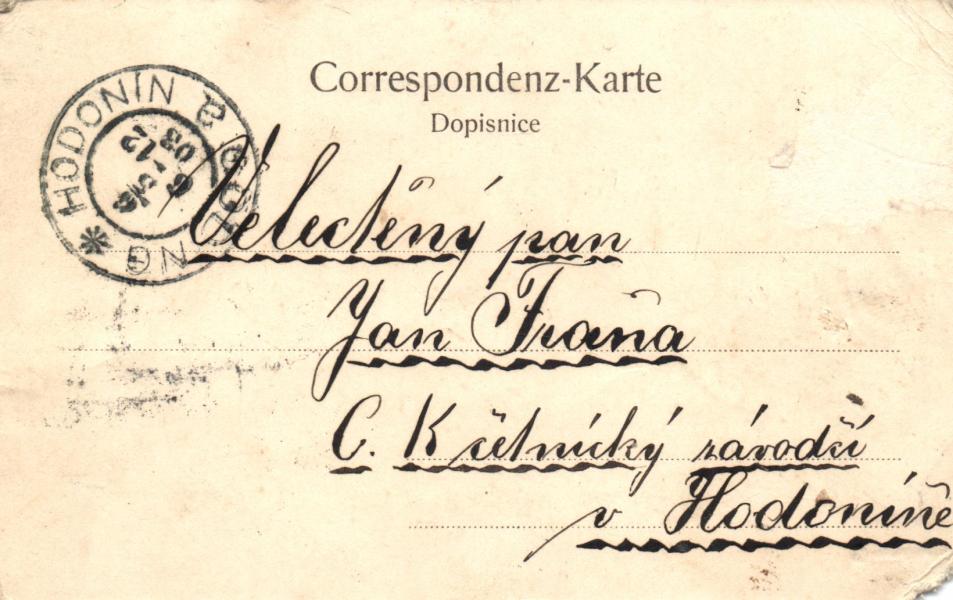 Correspondenz-Karte
Dopisnice
HODONÍN
GÖDING
6 12
03
Velectěný pan
Jan Fraňa
C. K účetnický závodčí
v Hodoníně